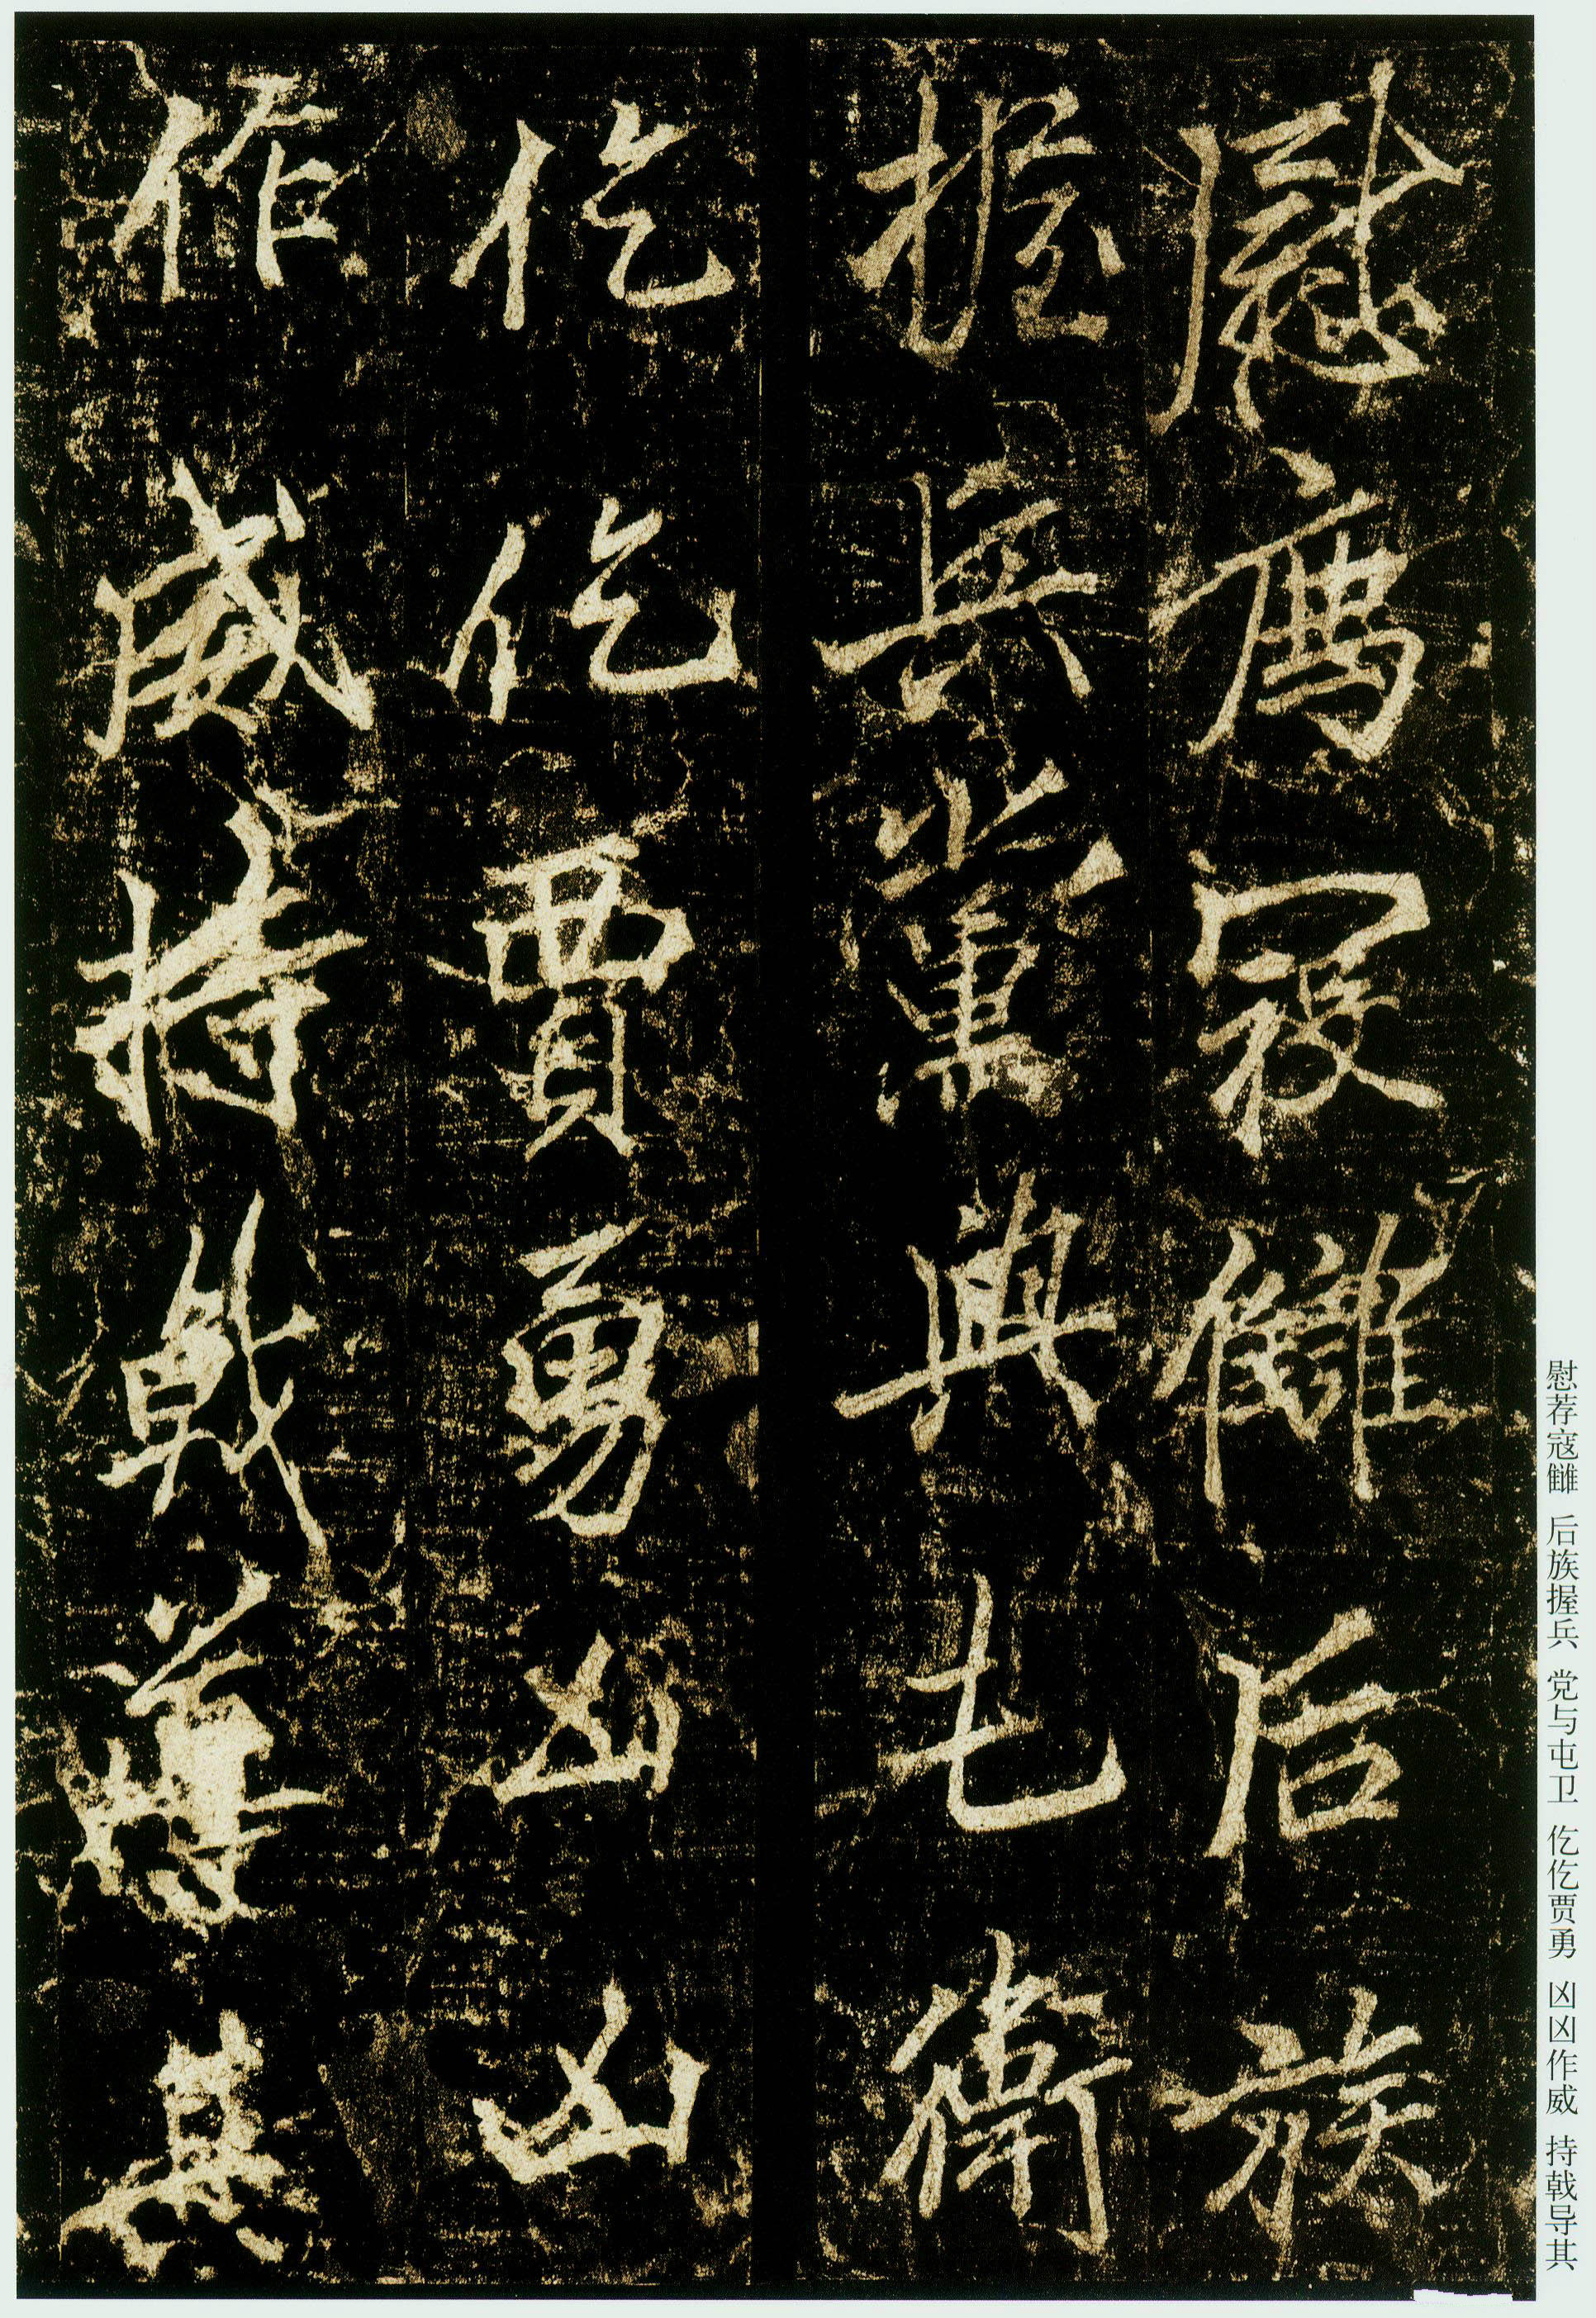 慰薦寇讎后族
握兵黨與屯衛
仡仡賈勇凶凶
作威持戟導其
慰荐寇雠 后族握兵 党与屯卫 仡仡贾勇 凶凶作威 持戟导其